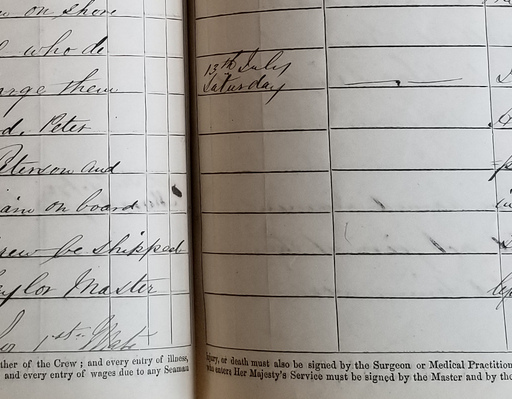 on shore
who de
them
Peter
Peterson and
on board
be shipped
Taylor Master
1st Mate
ther of the Crew ; and every entry of illness,
and every entry of wages due to any Seaman
13th July
Saturday
injury, or death must also be signed by the Surgeon or Medical Practition
who enters Her Majesty's Service must be signed by the Master and by the